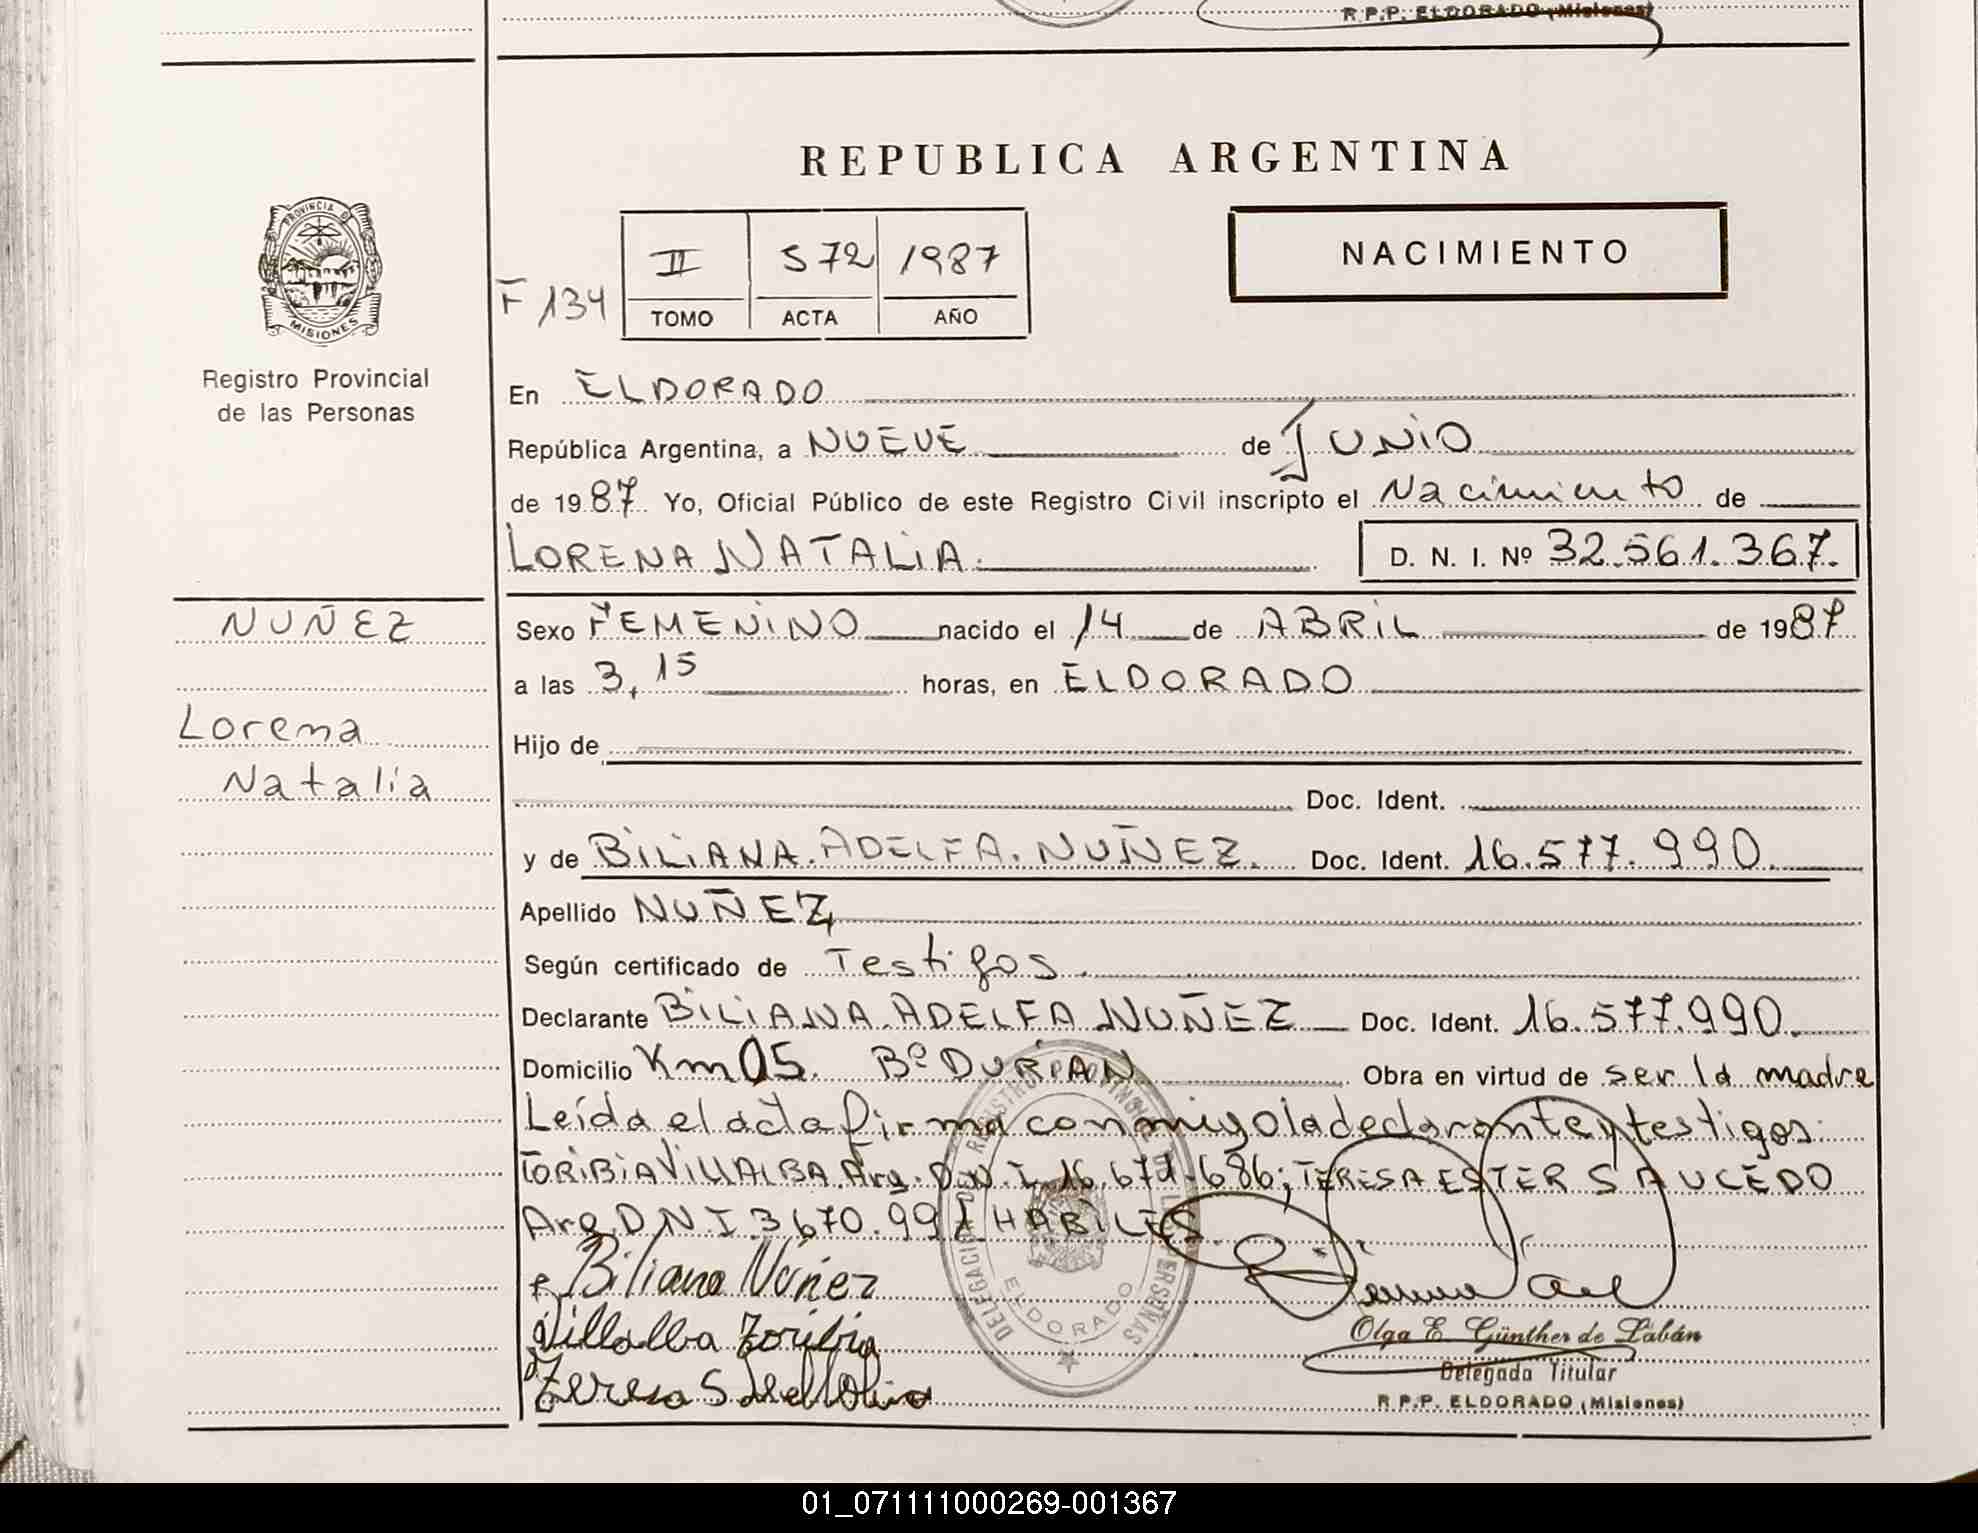 R.P.P. ELDORADO (Misiones)
REPUBLICA ARGENTINA
PROVINCIA DE
MISIONES
Registro Provincial
de las Personas
NACIMIENTO
F 134
II 572 1987
TOMO ACTA AÑO
En ELDORADO
República Argentina, a NUEVE de JUNIO
de 1987 Yo, Oficial Público de este Registro Civil inscripto el Nacimiento de
LORENA NATALIA. D. N. I. Nº 32.561.367.
NUÑEZ
Lorena
Natalia
Sexo FEMENINO nacido el 14 de ABRIL de 1987
a las 3,15 horas, en ELDORADO
Hijo de
Doc. Ident.
y de BILIANA. ADELFA. NUÑEZ. Doc. Ident. 16.577.990.
Apellido NUÑEZ
Según certificado de Testigos.
Declarante BILIANA. ADELFA NUÑEZ Doc. Ident. 16.577.990.
Domicilio Km 05. Bº DURIAN Obra en virtud de ser la madre
Leída el acta firma conmigo la declarante y testigos
TORIBIA VILLALBA Arg. D.N.I. 16.671.686; TERESA ESTER SAUCEDO
Arg. D N I 3670.991 HABILES.
Biliana Núñez
Villalba Toribia
Teresa S
DELEGACION DEL REGISTRO PROVINCIAL DE LAS PERSONAS
ELDORADO
Olga E. Günther de Labán
Delegada Titular
R.P.P. ELDORADO (Misiones)
01_071111000269-001367